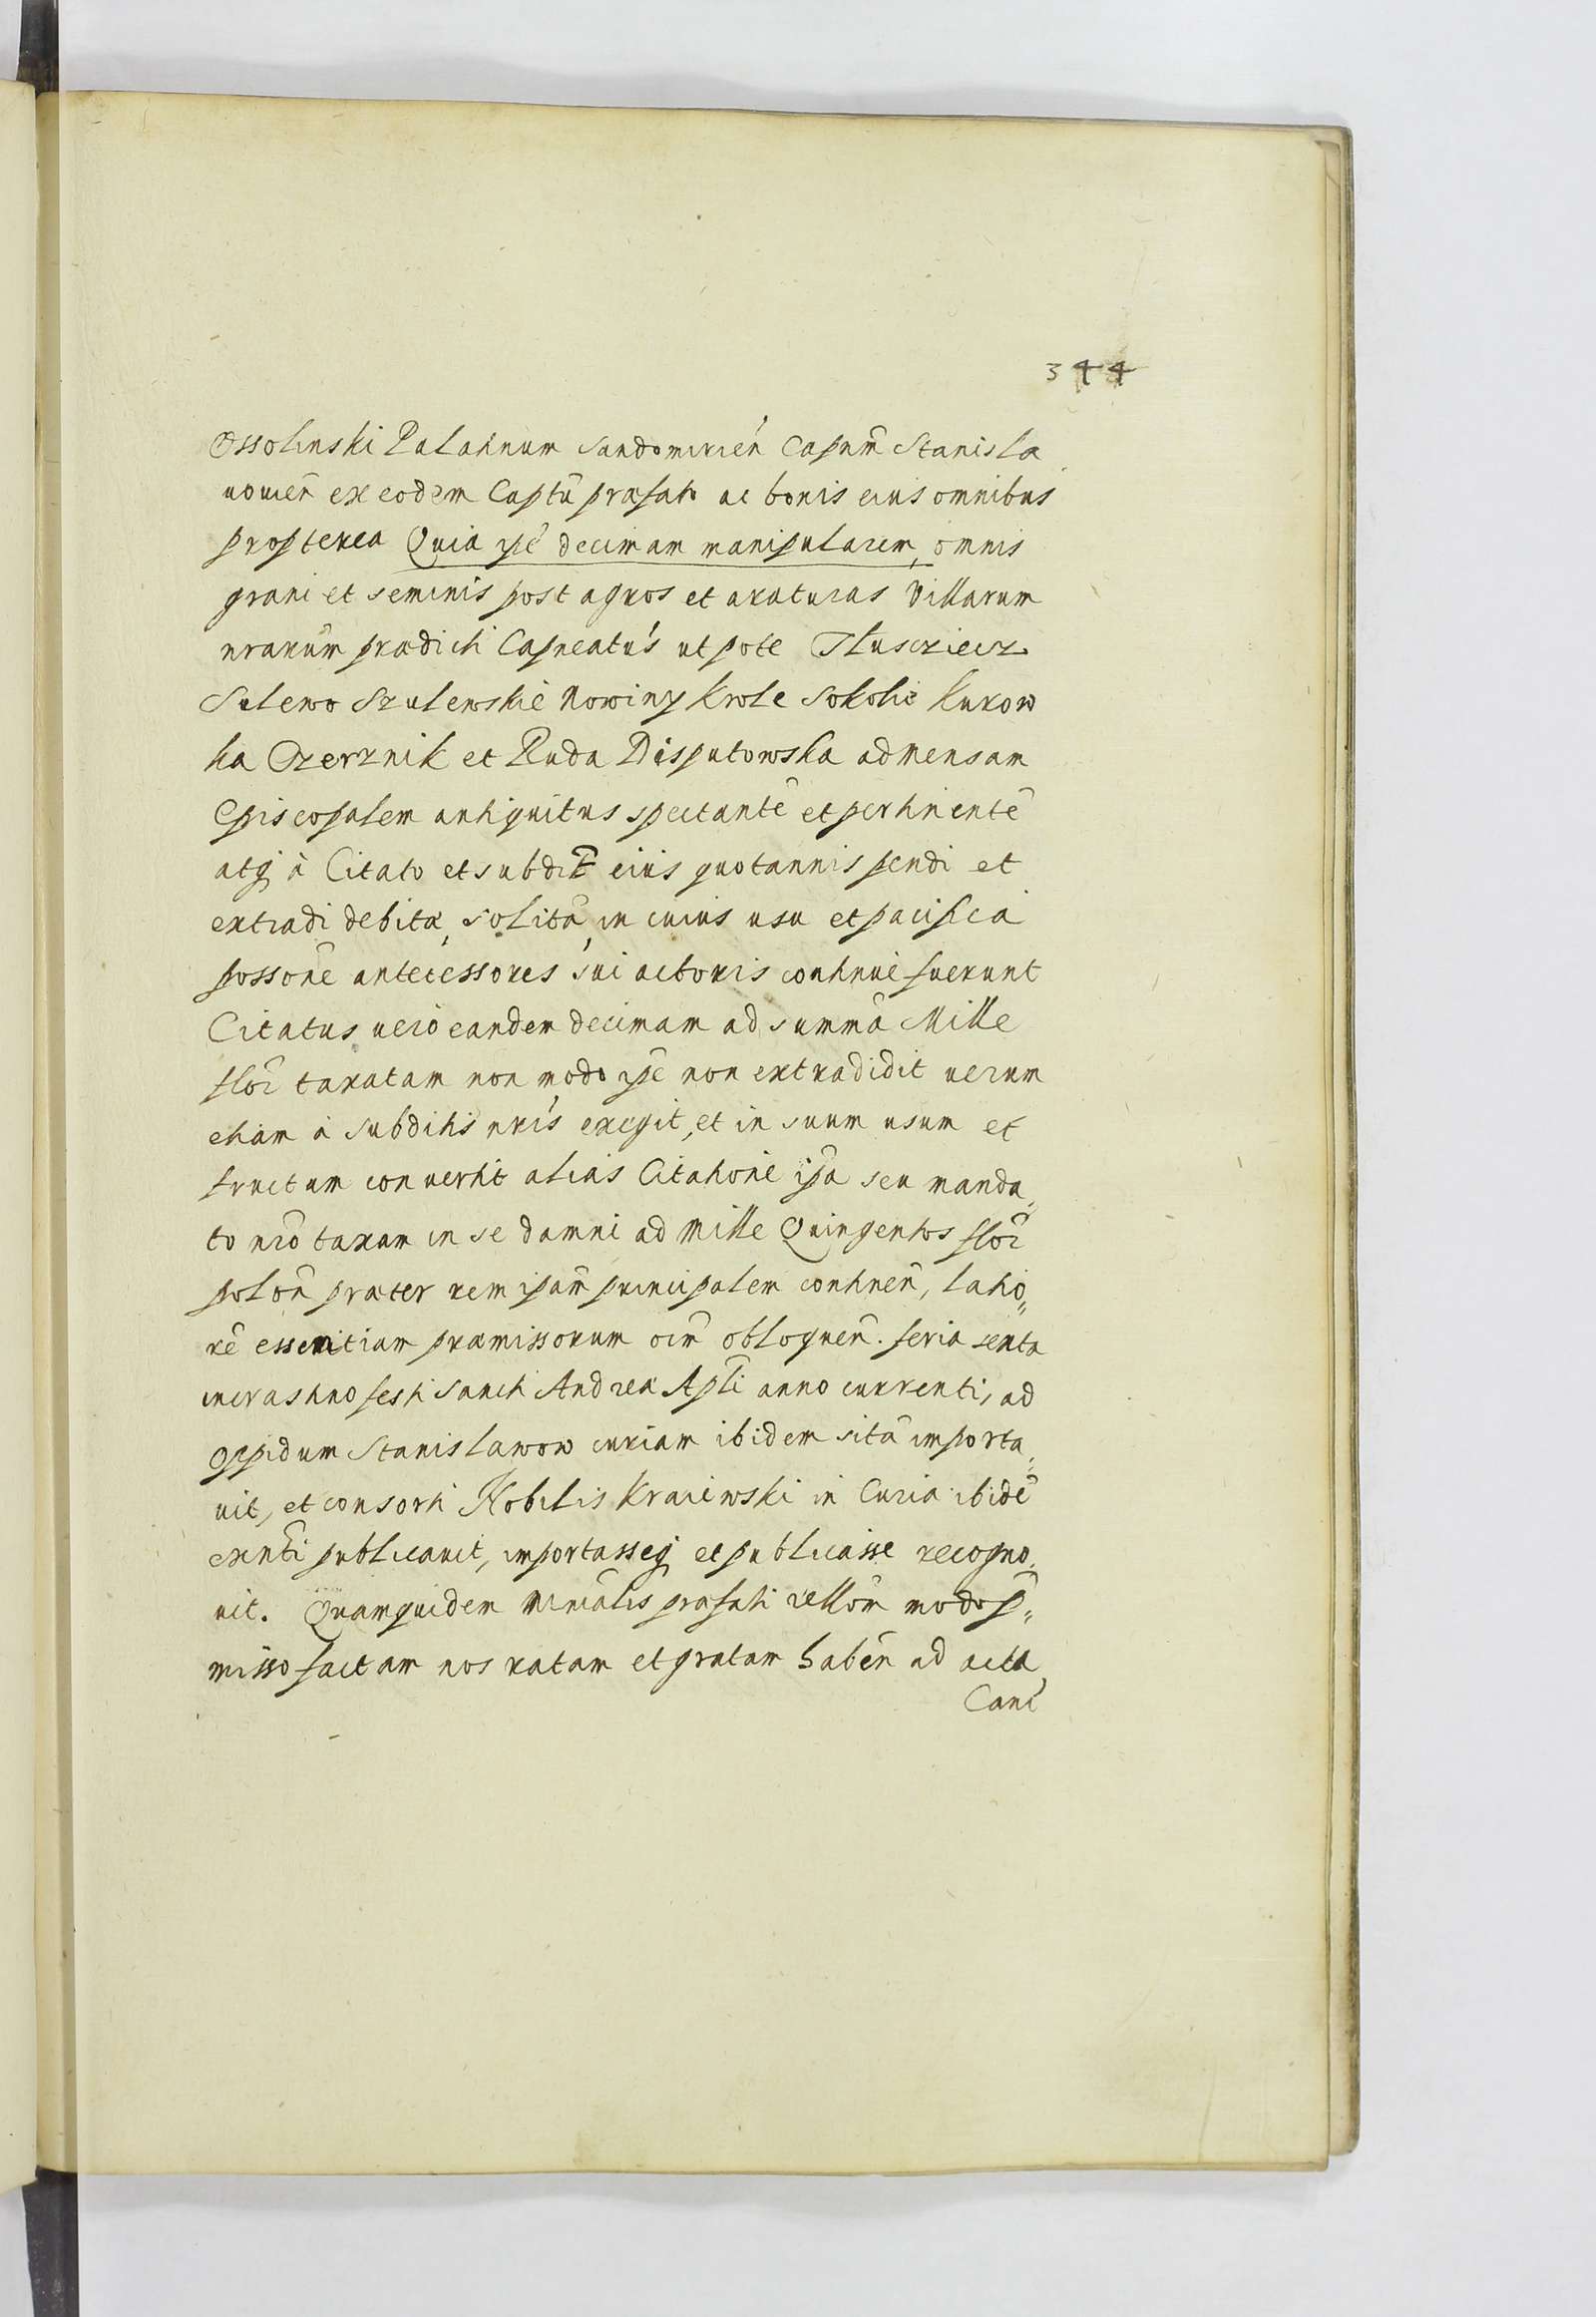 344
Ossolinski Palatinum Sandomirień Capnm̃ Stanisla
uouień ex eodem Captũ præfato ac bonis eius omnibus
propterea Quia ipẽ decimam manipularem, omnis
grani et seminis post agros et araturas Villarum
nrarum prædicti Capneatus ut pote Tłuscziecz
Sulewo Szulewskie Nowiny Krole Sokolie Kurow
ka Czerznik et Ruda Disputowska ad mensam
Episcopalem antiquitus spectantẽ et pertinentẽ
atq à Citato et subdit̃ eius quotannis pendi et
extradi debitã, solitã, in cuius usu et pacifica
possonẽ antecessores sui actoris continuè fuerunt
Citatus uerò eandem decimam ad summã Mille
flor̃ taxatam non modo ipẽ non extradidit uerum
etiam à subditis nris exegit, et in suum usum et
fructum conuertit alias Citationẽ ipã seu manda,
to nrõ taxam in se damni ad Mille Quingentos flor̃
polõn præter rem ipãm principalem continẽn, latio,,
rẽ essentiam præmissorum oim̃ obloquẽn. feria sexta
in crastino festi Sancti Andreæ Apl̃i anno currenti, ad
oppidum Stanislawow curiam ibidem sitã importa,,
uit, et consorti Nobilis Kraiewski in Curia ibidẽ
exñti publicauit, importasseq et publicasse recogno,
uit. Quamquidem Miniãlis præfati rellõm modo p̃,,
misso factam nos ratam et gratam habẽn ad acta
Canc̃